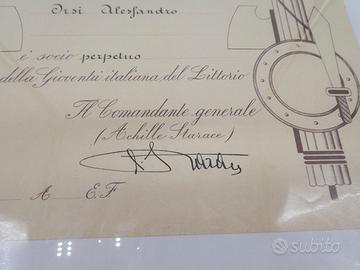 Orsi Alessandro
è socio perpetuo
della Gioventù italiana del Littorio
Il Comandante generale
(Achille Starace)
A E.F.
subito